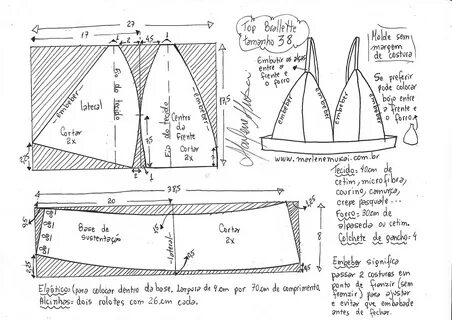 Top Brallette
tamanho 38
Molde sem
margem
de costura
Embutir as alças
entre o
frente e
o forro
Se preferir
pode colocar
bojo entre
a frente e
o forro
27
17
2
2
4,5
17,5
Embeber
Lateral
Cortar
2x
Eio do tecido
Embeber
Centro da
frente
Cortar
2x
Eio do tecido
Embeber
7,5
2,5
2
1
Embeber
Embeber
Embeber
Embeber
www.marlenemukai.com.br
38,5
20
Base de
sustentação
Lateral
Cortar
2x
8
Tecido: 40cm de
cetim, microfibra,
courino, camurça,
crepe pasquale...
Forro: 30cm de
alpaseda ou cetim.
Colchete de gancho: 4
Embeber significa
passar 2 costuras em
ponto de franzir (sem
franzir) para ajustar
e evitar que embabade
antes de fechar.
Elástico: (para colocar dentro da base, largura de 4cm por 70cm de comprimento.
Alcinhas: dois rolotes com 26cm cada.